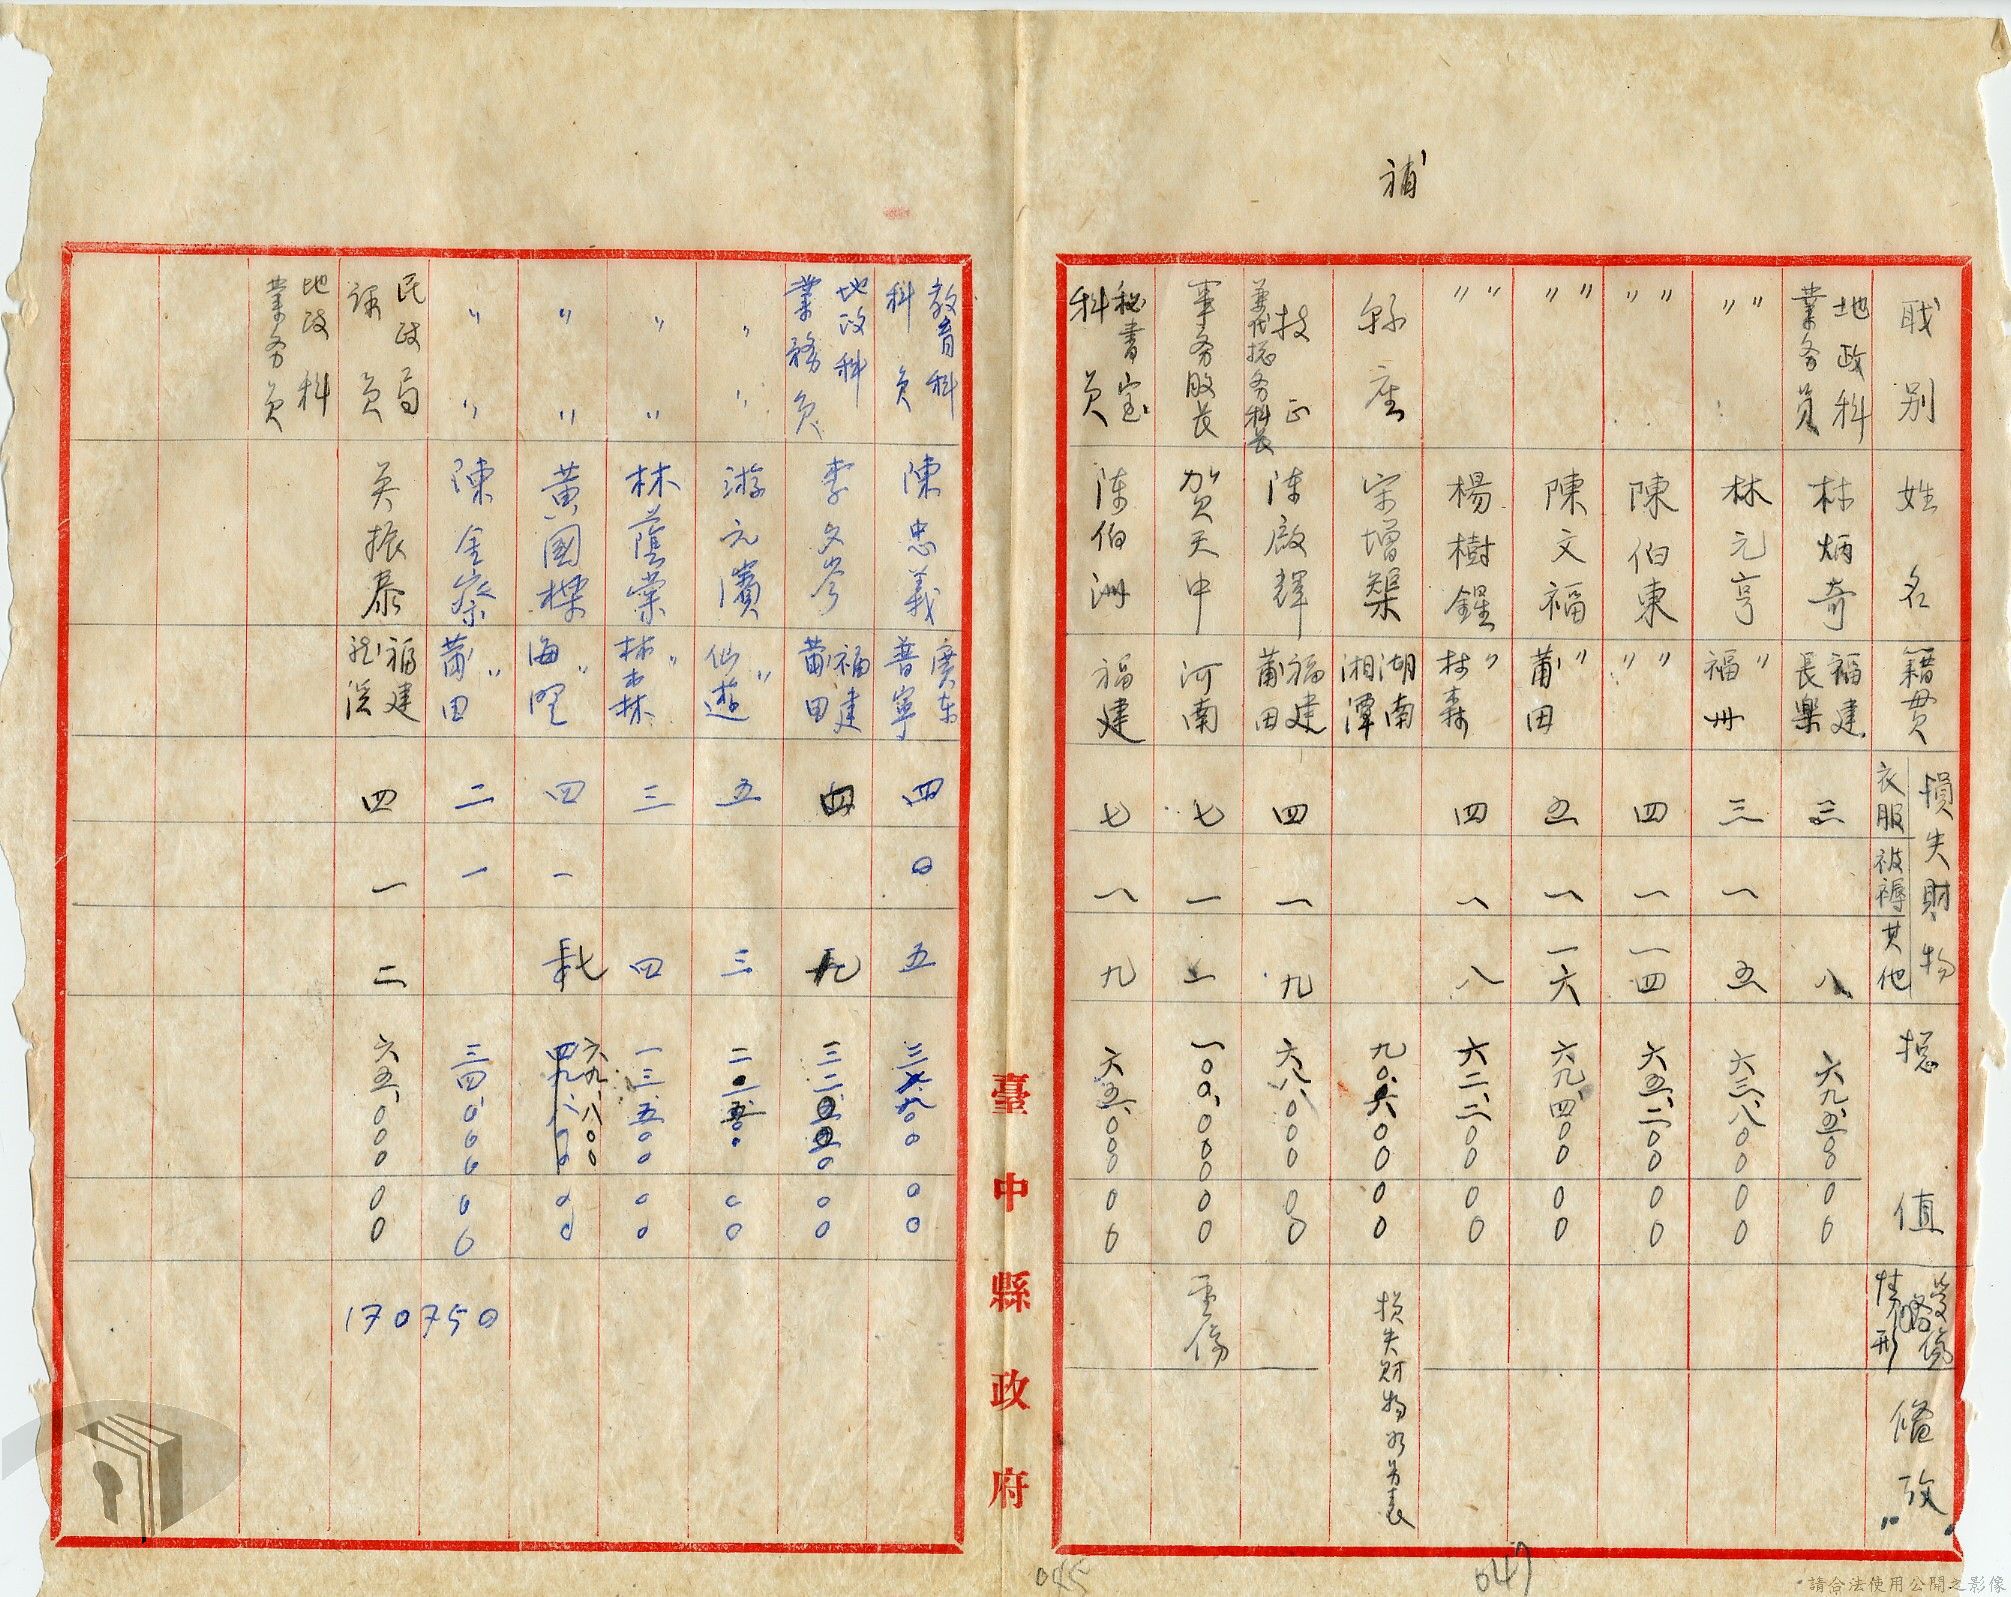 補
職別 姓名 籍貫 損失財物 衣服 被褥 其他 總值 受傷情形 備攷
地政科業务員 林炳奇 福建長樂 三 八 六九、五〇〇 〇〇
〃〃 林元亨 〃福州 三 一 五 六三、八〇〇 〇〇
〃〃 陳伯東 〃〃 四 一 一四 六五、二〇〇 〇〇
〃〃 陳文福 〃莆田 五 一 一六 六九、四〇〇 〇〇
〃〃 楊樹鏗 〃林森 四 一 八 六二、二〇〇 〇〇
縣座 宋增榘 湖南湘潭 九〇、六〇〇 〇〇 損失財物如另表
技正兼代總务科長 陈啟輝 福建莆田 四 一 九 六八、〇〇〇 〇〇
事务股長 賀天中 河南 七 一 一 一〇〇、〇〇〇 〇〇 重傷
秘書室科員 陈伯洲 福建 七 一 九 六五、〇〇〇 〇〇
臺中縣政府
教育科科員 陳忠義 廣东普寧 四 〇 五 〇〇
地政科業務員 李文岑 福建莆田 四 九 〇〇
〃〃 游元濱 〃仙遊 五 三 〇〇
〃〃 林蔭棠 〃林森 三 四 一三、五〇〇 〇〇
〃〃 黃國樑 〃海澄 四 一 七 六九、八〇〇 〇〇
〃〃 陳金察 〃莆田 二 一 三四、〇〇〇 〇〇
民政局課員 吳振泰 福建龙溪 四 一 二 六五、〇〇〇 〇〇
地政科業务員
170750
047
請合法使用公開之影像